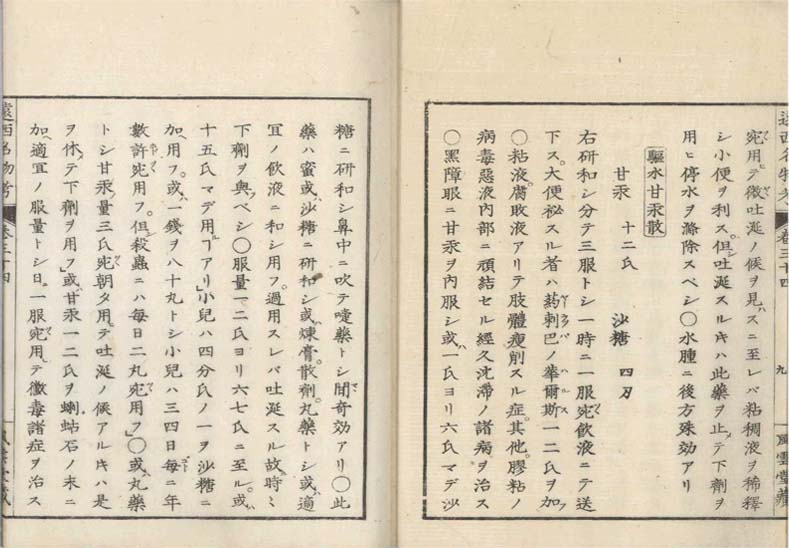 遠西名物考 卷三十四 九 風雲堂藏
宛用テ微吐涎ノ候ヲ見ハスニ至レバ粘稠液ヲ稀釋
シ小便ヲ利ス但吐涎スルキハ此藥ヲ止テ下劑ヲ
用ヒ停水ヲ滌除スベシ○水腫ニ後方殊効アリ
驅水甘汞散
甘汞 十二氏 沙糖 四刄
右研和シ分テ三服トシ一時ニ一服宛飲液ニテ送
下ス。大便祕スル者ハ葯剌巴ノ華爾斯一二氏ヲ加フ
○粘液腐敗液アリテ肢體瘦削スル症。其他膠粘ノ
病毒惡液內部ニ頑結セル經久沈滯ノ諸病ヲ治ス
○黑障眼ニ甘汞ヲ內服シ或ハ一氏ヨリ六氏マデ沙
糖ニ研和シ鼻中ニ吹テ嚏藥トシ間奇効アリ○此
藥ハ蜜或ハ沙糖ニ研和シ或ハ煉膏。散劑。丸藥トシ或ハ適
冝ノ飲液ニ和シ用フ。過用スレバ吐涎スル故時々
下劑ヲ與ベシ○服量一二氏ヨリ六七氏ニ至ル。或ハ
十五氏マデ用ヿアリ」小兒ハ四分氏ノ一ヲ沙糖ニ
加ヘ用フ。或ハ一錢ヲ八十丸トシ小兒ハ三四日每ニ年
數許宛用フ。但殺蟲ニハ每日二丸宛用フ」○或ハ丸藥
トシ甘汞量三氏宛朝夕用テ吐涎ノ候アルキハ是
ヲ休テ下劑ヲ用フ」或ハ甘汞一二氏ヲ蝲蛄石ノ末ニ
加ヘ適冝ノ服量トシ日ニ一服宛用テ黴毒諸症ヲ治ス
遠西名物考 卷三十四